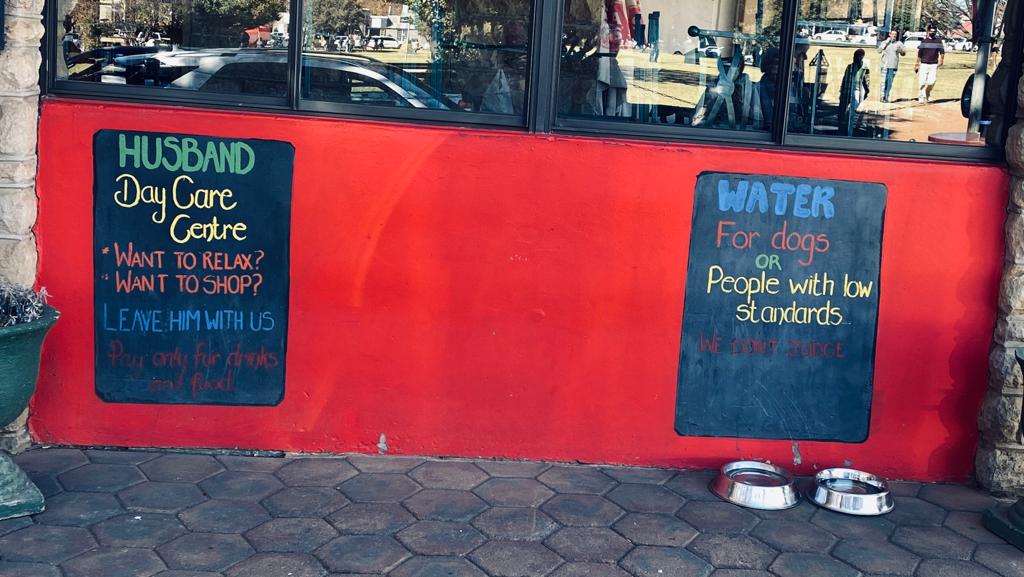 HUSBAND
Day Care
Centre
* WANT TO RELAX?
* WANT TO SHOP?
LEAVE HIM WITH US
Pay only for drinks
and food
WATER
For dogs
OR
People with low
standards...
WE DON'T JUDGE